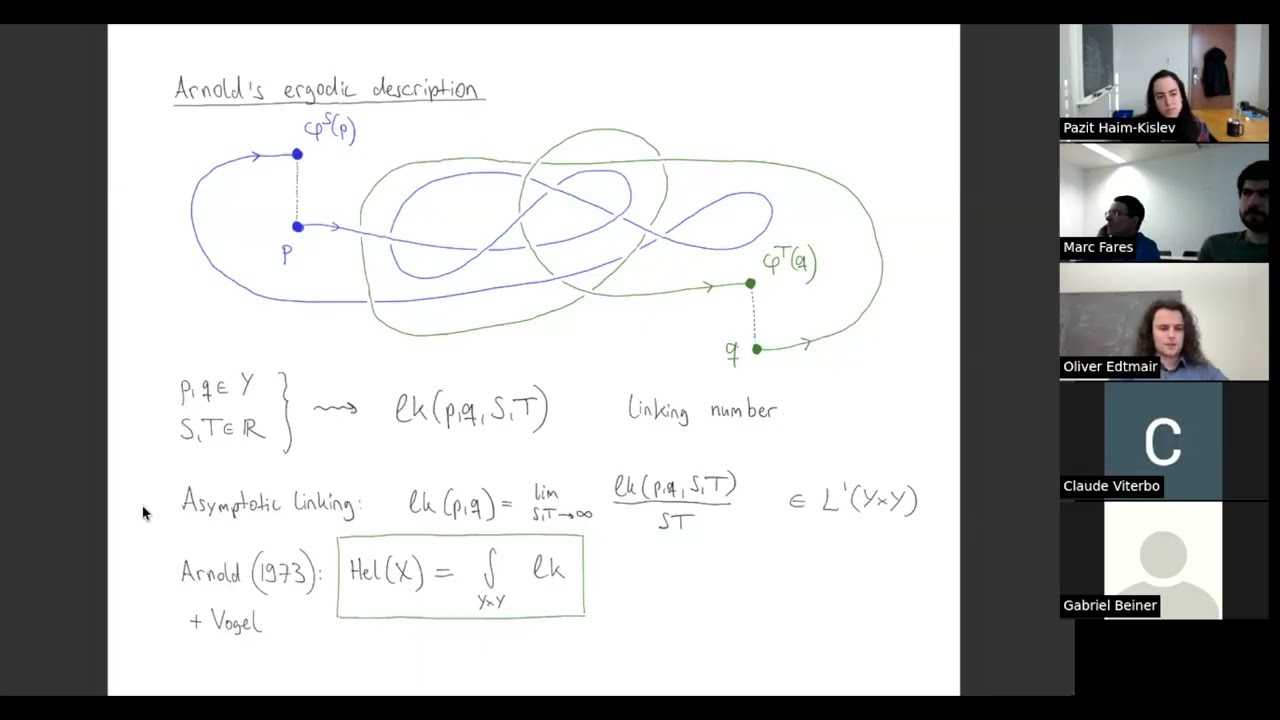 Arnold's ergodic description
φ^S(p)
p
φ^T(q)
q
p,q ∈ Y
S,T ∈ ℝ
⇝ lk(p,q,S,T) linking number
Asymptotic linking: lk(p,q) = lim_{S,T→∞} lk(p,q,S,T) / ST ∈ L¹(Y×Y)
Arnold (1973): Hel(X) = ∫_{Y×Y} lk
+ Vogel
Pazit Haim-Kislev
Marc Fares
Oliver Edtmair
C
Claude Viterbo
Gabriel Beiner